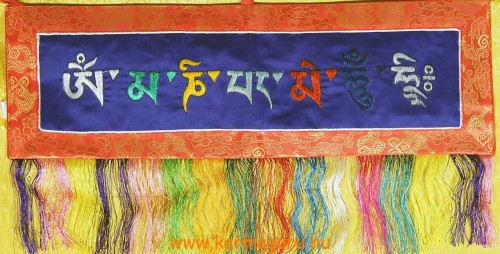 ཨོཾ་མ་ཎི་པད་མེ་ཧཱུྃ་ཧྲཱིཿ
www.karmaguru.hu